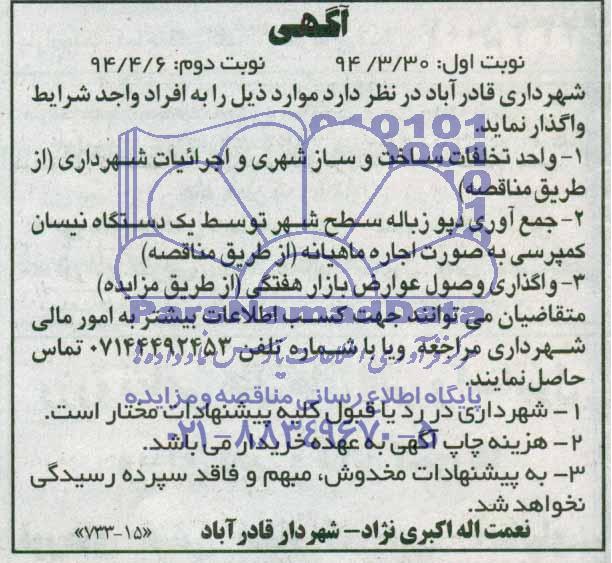 آگهی
نوبت اول: ۹۴/۳/۳۰ نوبت دوم: ۹۴/۴/۶
شهرداری قادرآباد در نظر دارد موارد ذیل را به افراد واجد شرایط
واگذار نماید.
۱- واحد تخلفات ساخت و ساز شهری و اجرائیات شهرداری (از
طریق مناقصه)
۲- جمع آوری دپو زباله سطح شهر توسط یک دستگاه نیسان
کمپرسی به صورت اجاره ماهیانه (از طریق مناقصه)
۳- واگذاری وصول عوارض بازار هفتگی (از طریق مزایده)
ParsNamadData
متقاضیان می توانند جهت کسب اطلاعات بیشتر به امور مالی
شهرداری مراجعه و یا با شماره تلفن ۰۷۱۴۴۴۹۲۴۵۳ تماس
حاصل نمایند.
پایگاه اطلاع رسانی مناقصه و مزایده
۱- شهرداری در رد یا قبول کلیه پیشنهادات مختار است.
۰۲۱-۸۸۳۴۹۶۷۰-۵
۲- هزینه چاپ آگهی به عهده خریدار می باشد.
۳- به پیشنهادات مخدوش، مبهم و فاقد سپرده رسیدگی
نخواهد شد.
نعمت اله اکبری نژاد- شهردار قادرآباد «۱۵-۷۳۳»